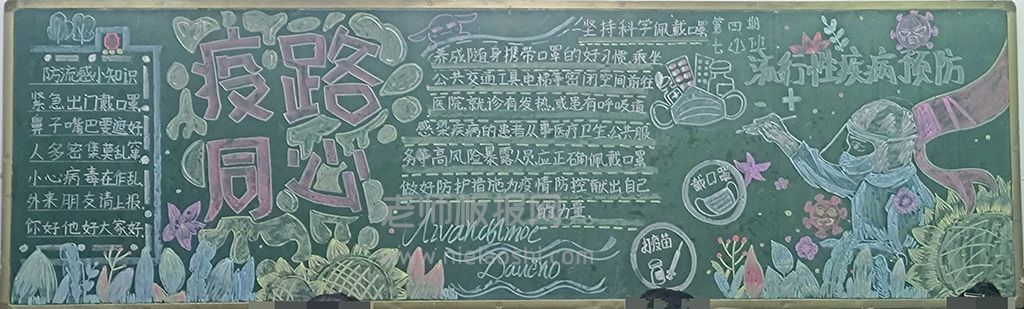 防流感小知识
紧急出门戴口罩
鼻子嘴巴要遮好
人多密集莫乱窜
小心病毒在作乱
外来朋友请上报
你好他好大家好
疫路
同心
坚持科学佩戴口罩
养成随身携带口罩的好习惯,乘坐
公共交通工具电梯等密闭空间前在
医院就诊有发热,或患有呼吸道
感染疾病的患者从事医疗卫生公共服
务等高风险暴露人员应正确佩戴口罩
做好防护措施为疫情防控献出自己
的力量.
第四期
七(8)班
流行性疾病预防
戴口罩
打疫苗
老师板报网
www.meiaoshi.com